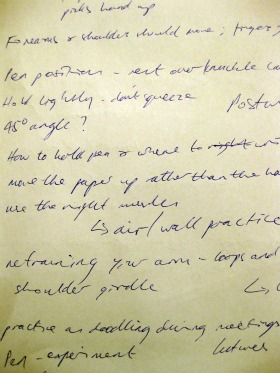 picks hand up
Forearms & shoulder should move; fingers
Pen position - rest over knuckle
Hold lightly - don't squeeze
Postur
45° angle?
How to hold pen & where to
move the paper up rather than the ha
use the right muscles
↳ air/wall practice
retraining your arm - loops and
shoulder girdle
practise as doodling during meetings
Pen - experiment
lectures